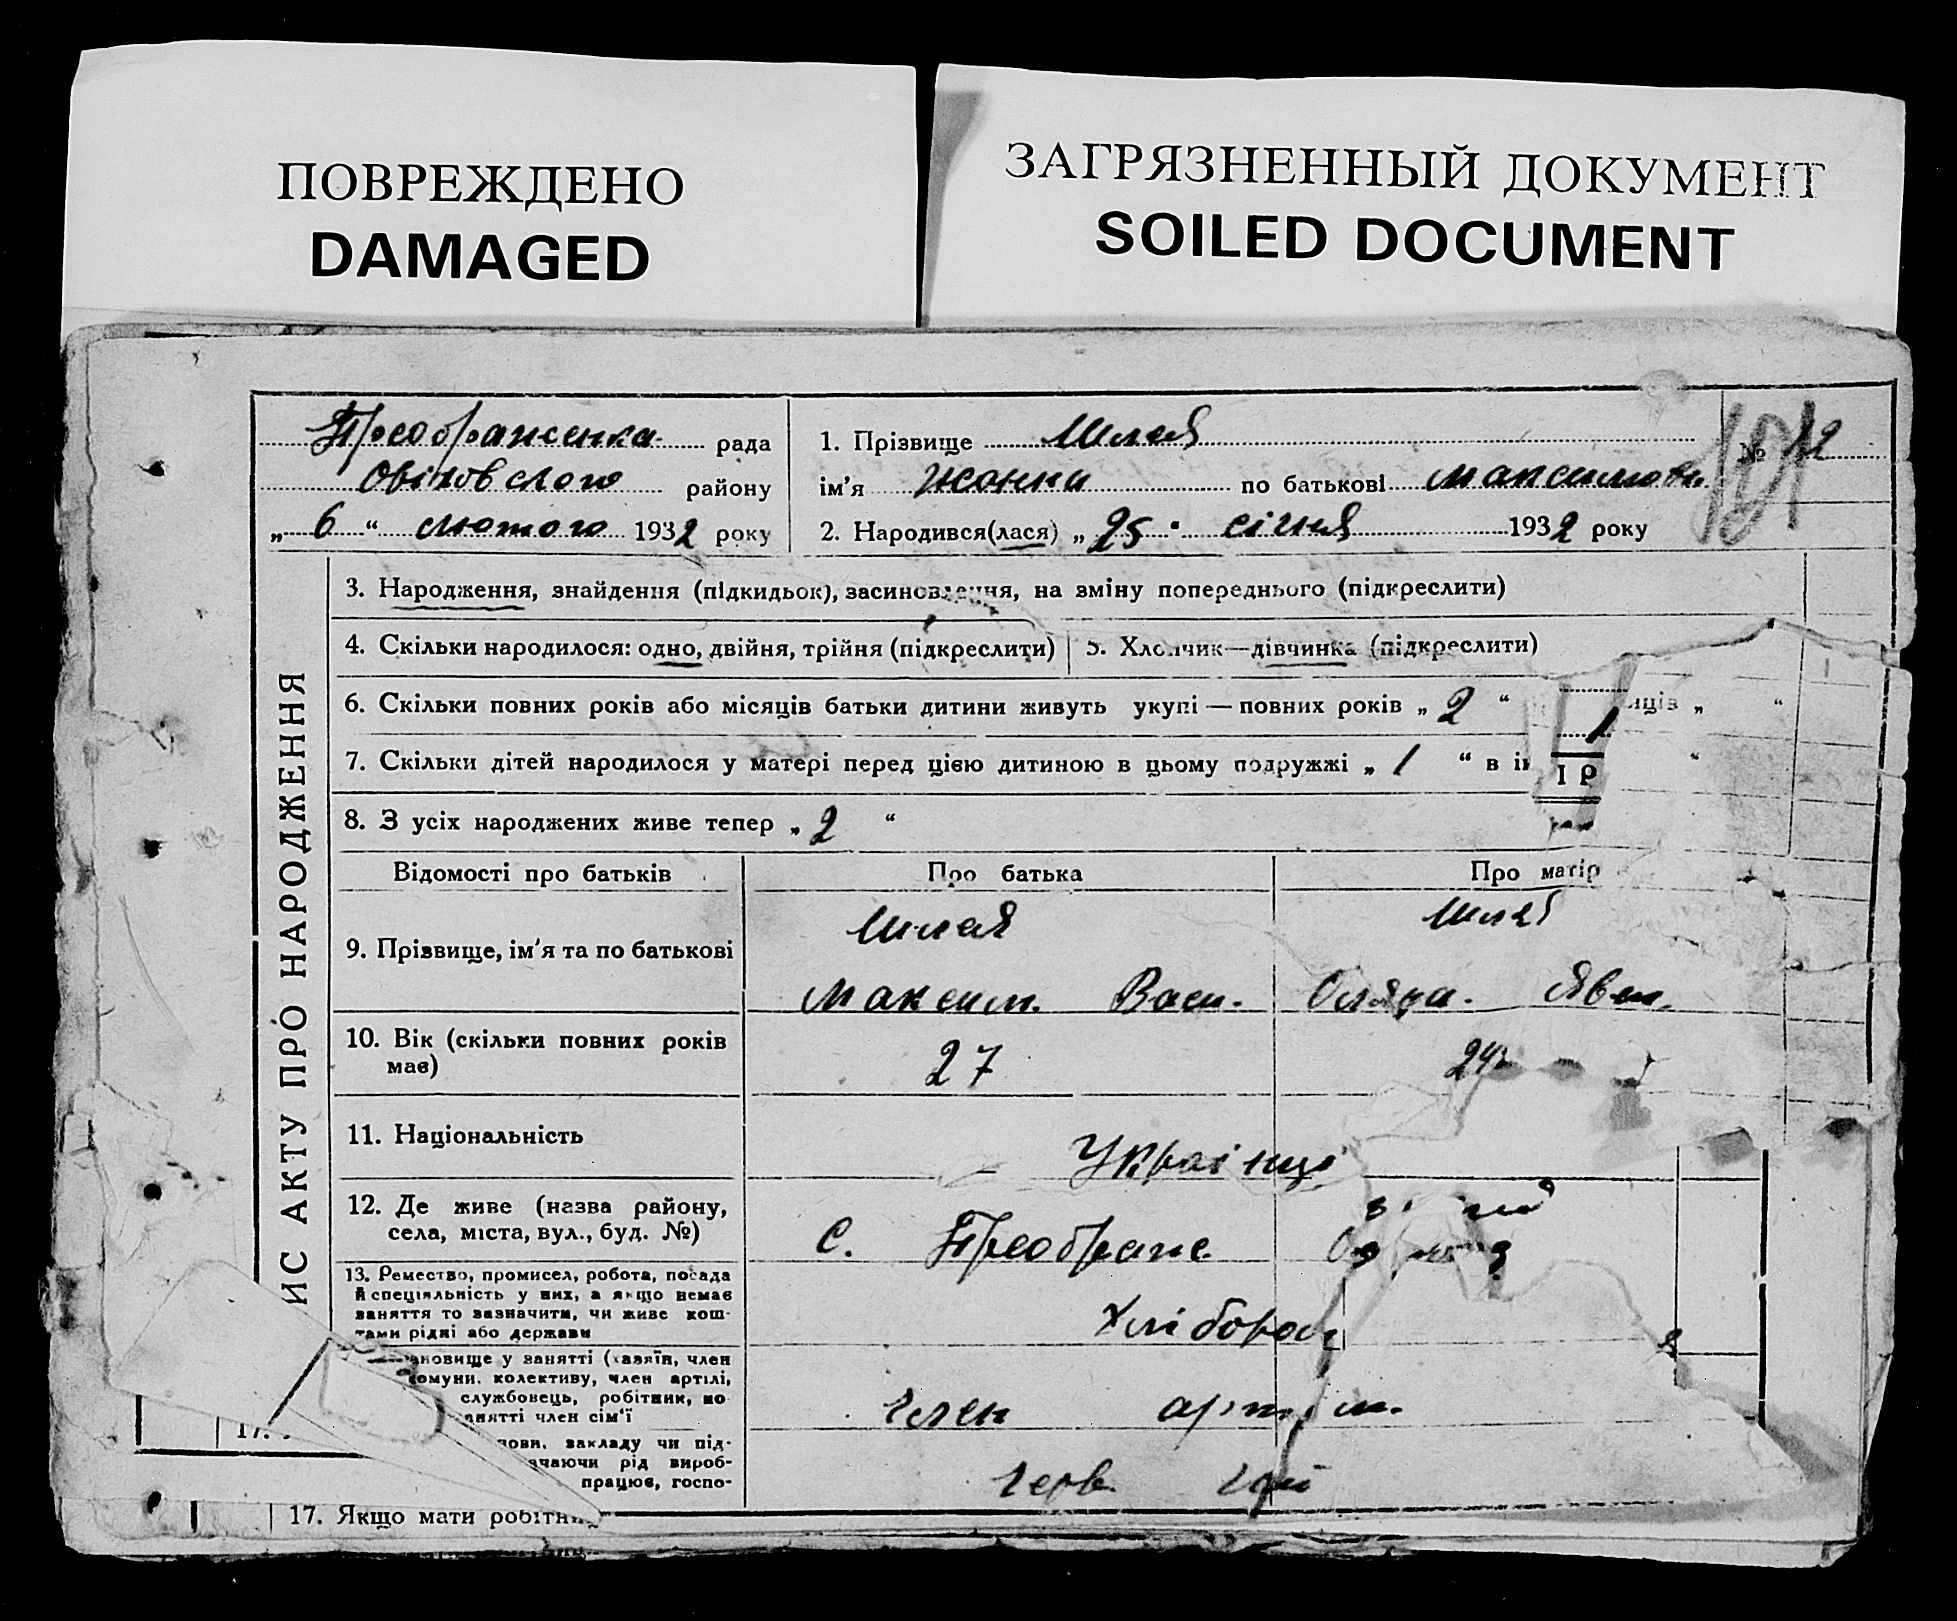 ПОВРЕЖДЕНО
DAMAGED
ЗАГРЯЗНЕННЫЙ ДОКУМЕНТ
SOILED DOCUMENT
Преображенка рада
району
„ 6 “ лютого 1932 року
1. Прізвище Шилая
ім'я по батькові
№ 12
2. Народився(лася) „ 25 " січня 1932 року
ИС АКТУ ПРО НАРОДЖЕННЯ
3. Народження, знайдення (підкидьок), засиновлення, на зміну попереднього (підкреслити)
4. Скільки народилося: одно, двійня, трійня (підкреслити)
5. Хлопчик—дівчинка (підкреслити)
6. Скільки повних років або місяців батьки дитини живуть укупі — повних років „ 2 “ яців „ “
7. Скільки дітей народилося у матері перед цією дитиною в цьому подружжі „ 1 “ в ін “
І Р
8. З усіх народжених живе тепер „ 2 “
Відомості про батьків Про батька Про матір
9. Прізвище, ім'я та по батькові
Шилая
Максим. Васи.
10. Вік (скільки повних років має)
27 24
11. Національність
Українці
12. Де живе (назва району,
села, міста, вул., буд. №)
с. Преображ.
13. Ремество, промисел, робота, посада
й спеціяльність у них, а якщо немає
заняття то зазначити, чи живе кош-
тами рідні або держави
Хлібороб
ановище у занятті (хазяїн, член
комуни, колективу, член артілі,
службовець, робітник, по
анятті член сім'ї
Член
нови, закладу чи під-
ачаючи рід вироб-
працює, госпо-
Черв.
17.
17. Якщо мати робітни